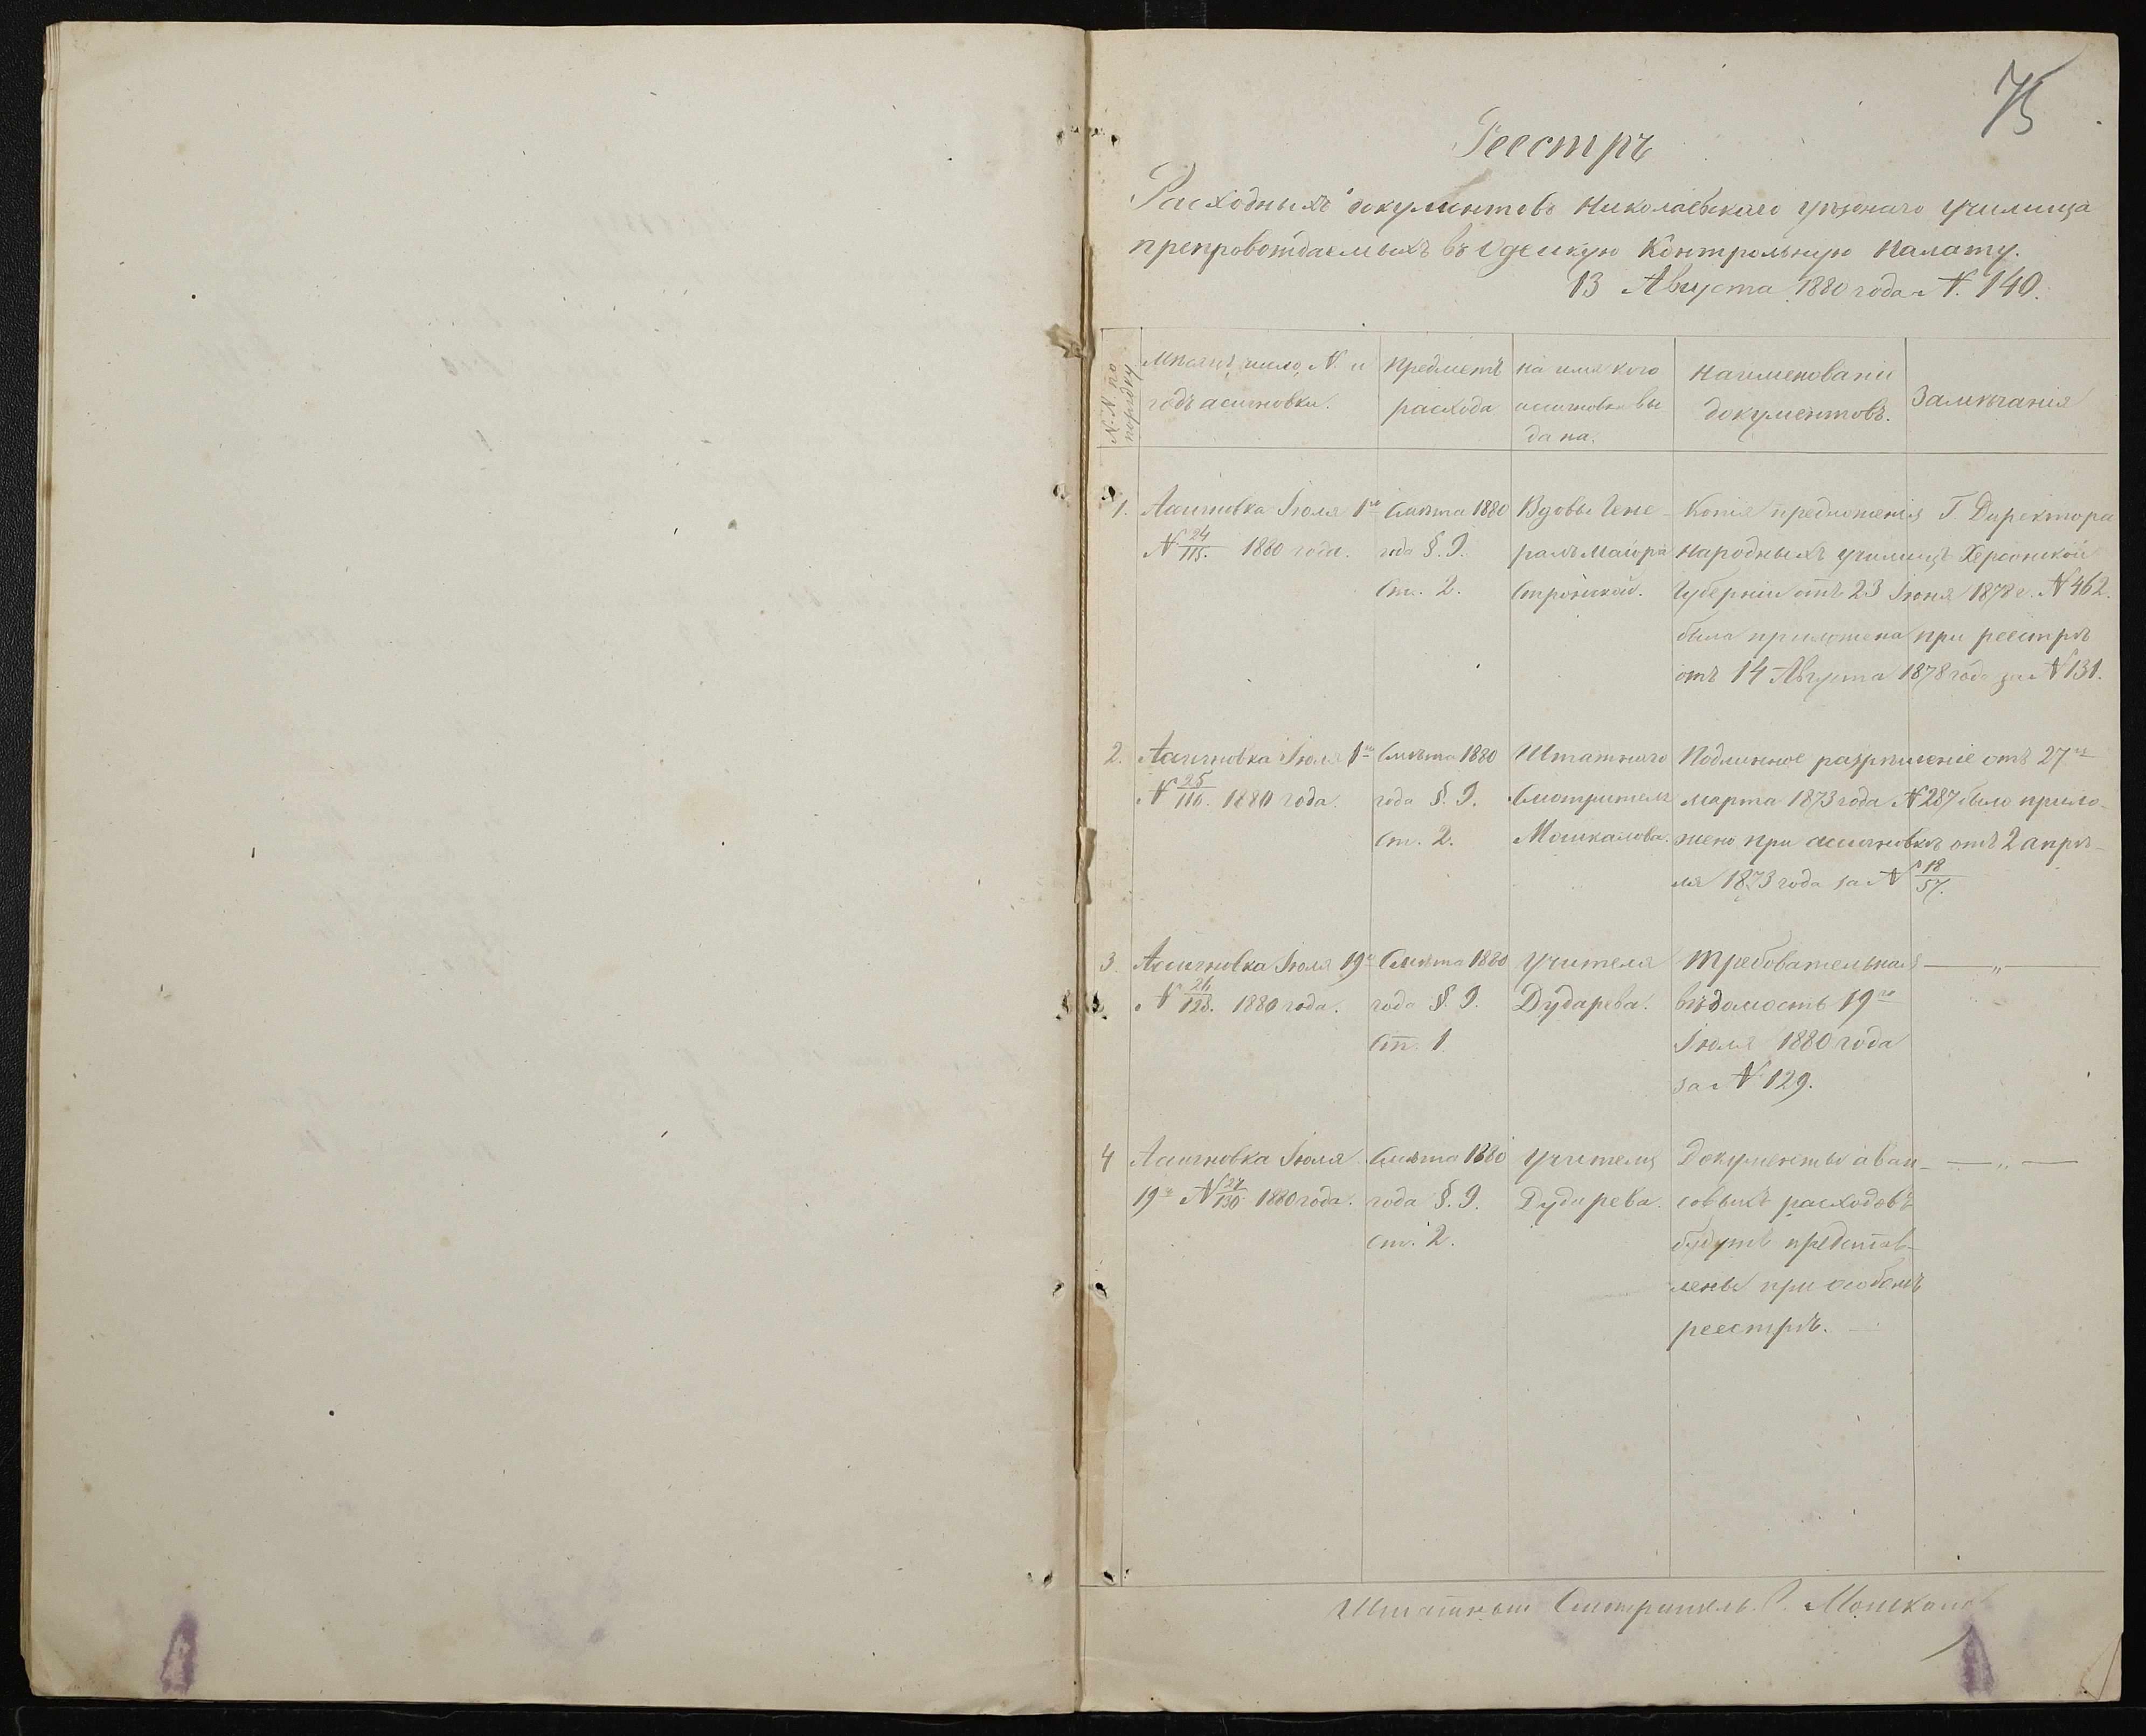 75
Реестръ
Расходныхъ документовъ Николаевскаго уѣзднаго училища
препровождаемыхъ въ Одесскую Контрольную Палату.
13 Августа 1880 года N. 140.
N. N. по порядку
Мѣсяцъ, число, N. и годъ асигновки.
Предметъ расхода
на имя кого асигновка выдана.
Наименованіе документовъ.
Замѣчанія
1. Асигновка Іюля 1го Смѣта 1880 Вдовы Гене- Копія предложенія Г Директора
N 24/115. 1880 года. года §. 9. ралъ Маіора народныхъ училищъ Херсонской
Ст. 2. Губерніи отъ 23 Іюня 1878 г. N 462.
была приложена при реестрѣ
отъ 14 Августа 1878 года за N 131.
2. Асигновка Іюля 1го Смѣта 1880 Штатнаго Подлинное разрѣшеніе отъ 27го
N 25/116. 1880 года. года §. 9. Смотрителя марта 1873 года N 287 было прило-
Ст. 2. Мошкалова. жено при асигновкѣ отъ 2 апрѣ-
ля 1873 года за N 18/57.
3. Асигновка Іюля 19го Смѣта 1880 Учителя Требовательная — „ —
N 26/128. 1880 года. года §. 9. Дударева. вѣдомость 19го
Ст. 1. Іюля 1880 года
за N 129.
4 Асигновка Іюля Смѣта 1880 Учителя Документы аван- — „ —
19го N 27/130 1880 года. года §. 9. Дударева. совыхъ расходовъ
Ст. 2. будутъ представ-
лены при особомъ
реестрѣ.
Штатный Смотритель Мошкалов